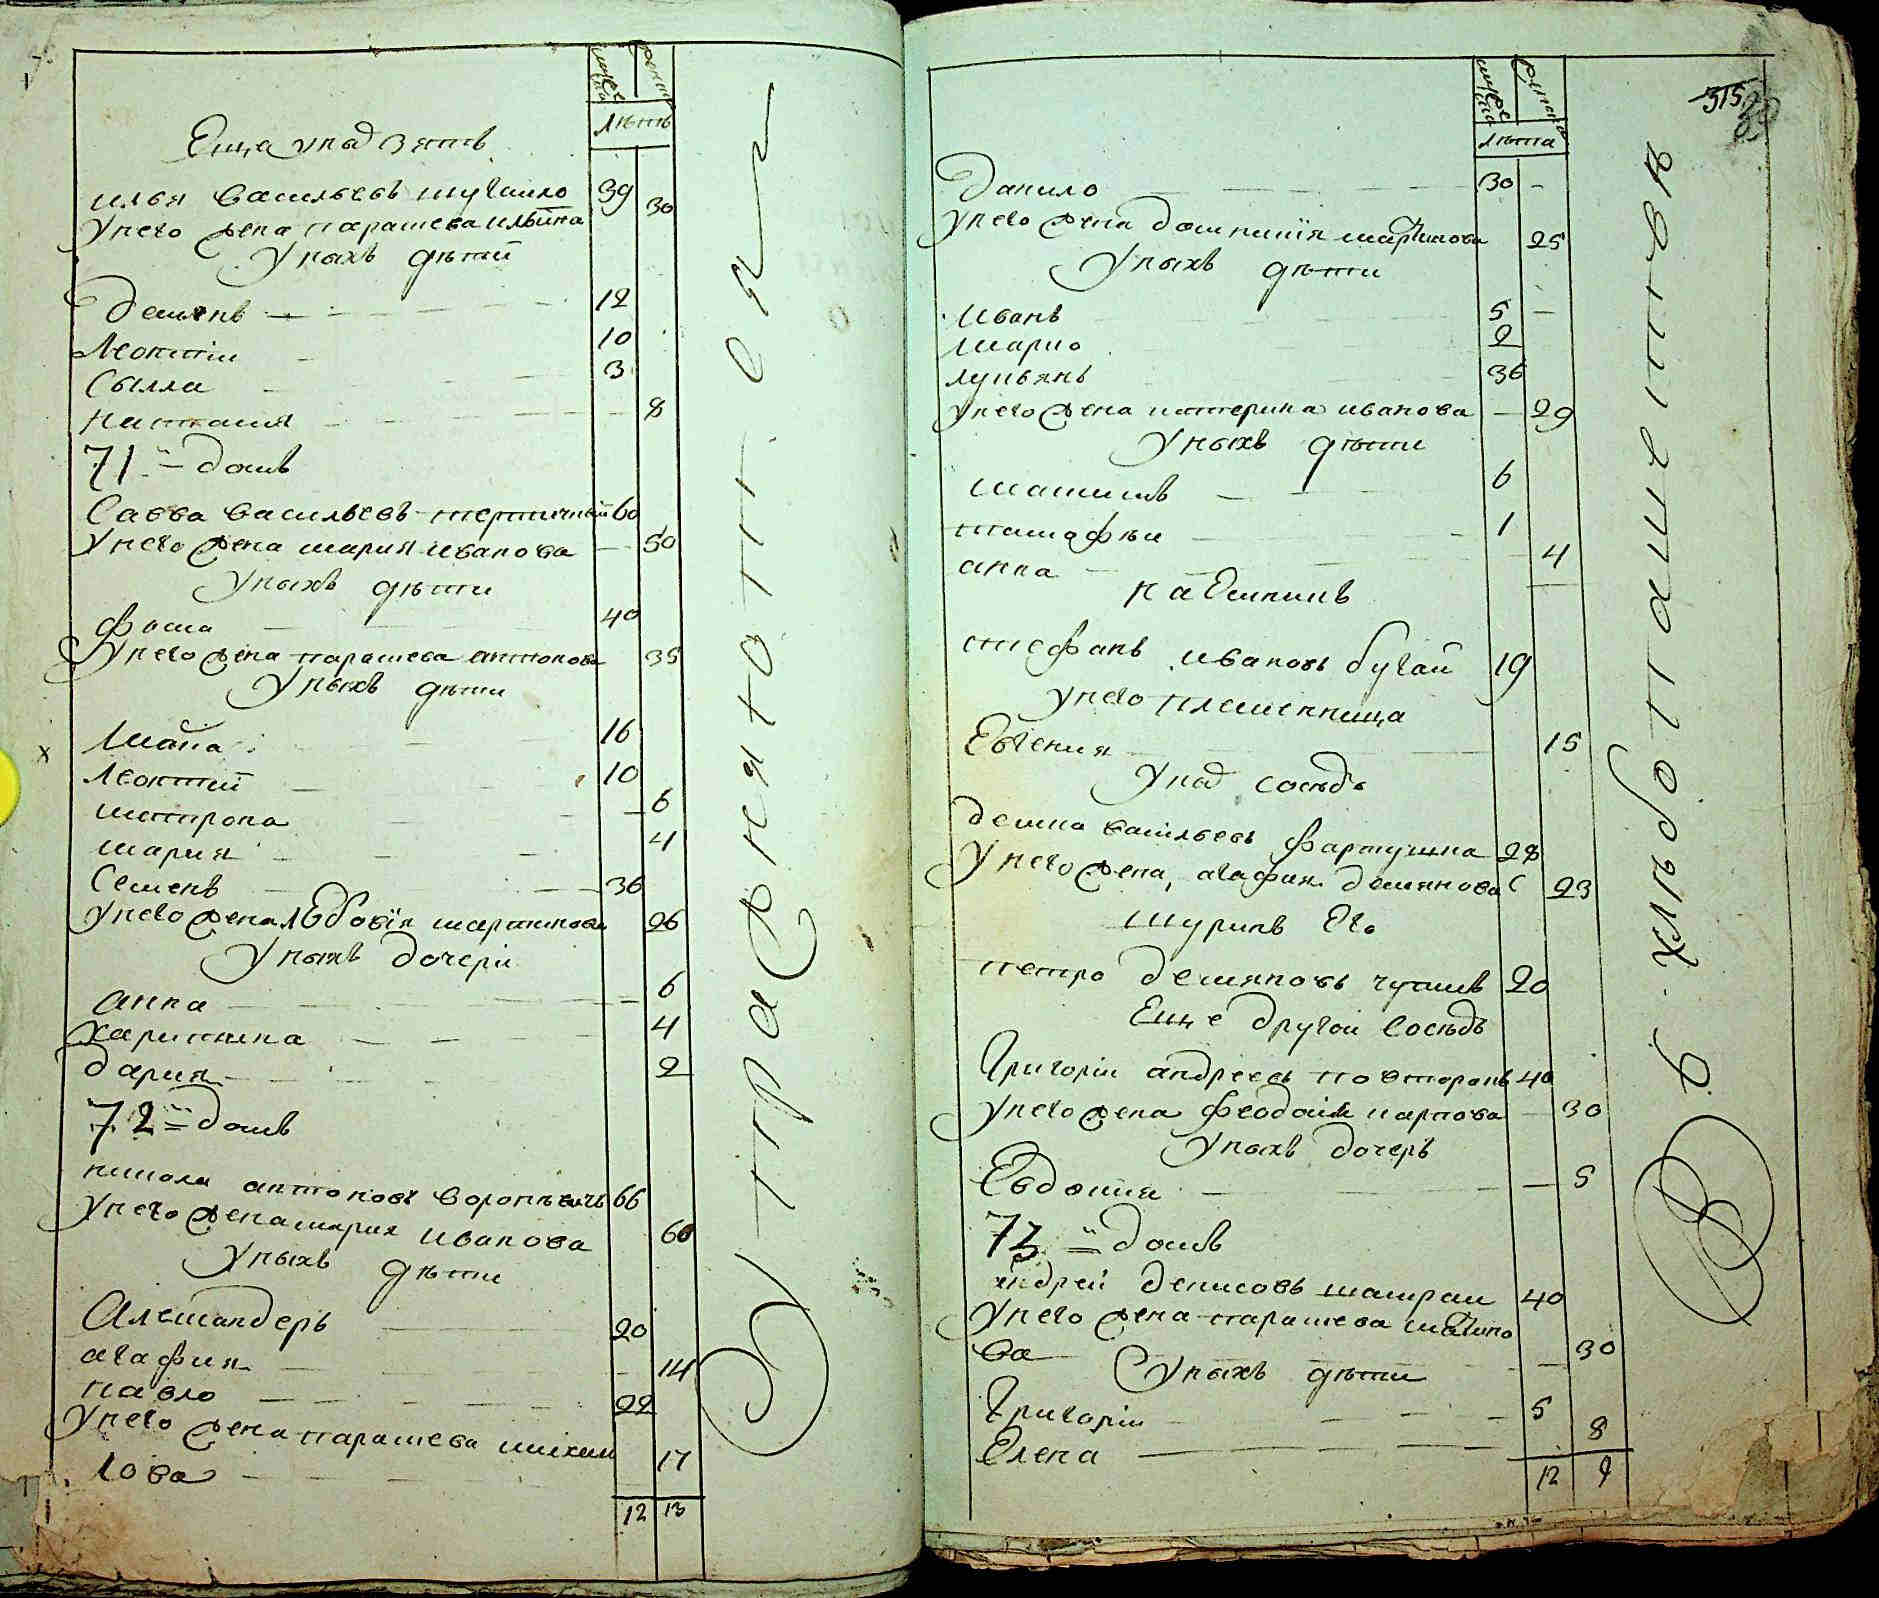 мужеска
женска
лѣтъ
Еще унад зять
илья васильевъ шугайло 39
Унего жена парашева ильина 30
Унихъ дѣти
Демянъ 12
Леонтіи 10
Сылла 3
наталия 8
71 й домъ
Савва васильевъ 60
Унего жена мария иванова 50
Унихъ дѣти
фома 40
Унего жена парашева антонова 35
Унихъ дѣти
16
Леонтий 10
митрона 6
мария 4
Семенъ 36
Унего жена мартинова 26
Унихъ дочери
анна 6
харитина 4
дария 2
72 й домъ
никола антоновъ 66
Унего жена мария иванова 60
Унихъ дѣти
Александеръ 20
агафия 14
павло 22
Унего жена парашева михай
лова 17
12 13
мужеска
женска
лѣта
315
Данило 30
Унего жена домникия мартинова 25
Унихъ дѣти
иванъ 5
марко 2
лукьянъ 36
Унего жена катерина иванова 29
Унихъ дѣти
максимъ 6
тимофѣи 1
анна 4
стефанъ ивановъ бугай 19
унего племенница
Евгения 15
Унад сосѣдъ
демко васильевъ фартушна 28
Унего жена агафия демянова 23
шуринъ Его
петро демяновъ 20
Еще другои сосѣдъ
Григоріи андреевъ 40
унего жена феодосия карпова 30
Унихъ дочеръ
Евдокия 5
73 й домъ
андрей денисовъ 40
Унего жена парашева
ва 30
Унихъ дѣти
Григоріи 5
Елена 8
12 9